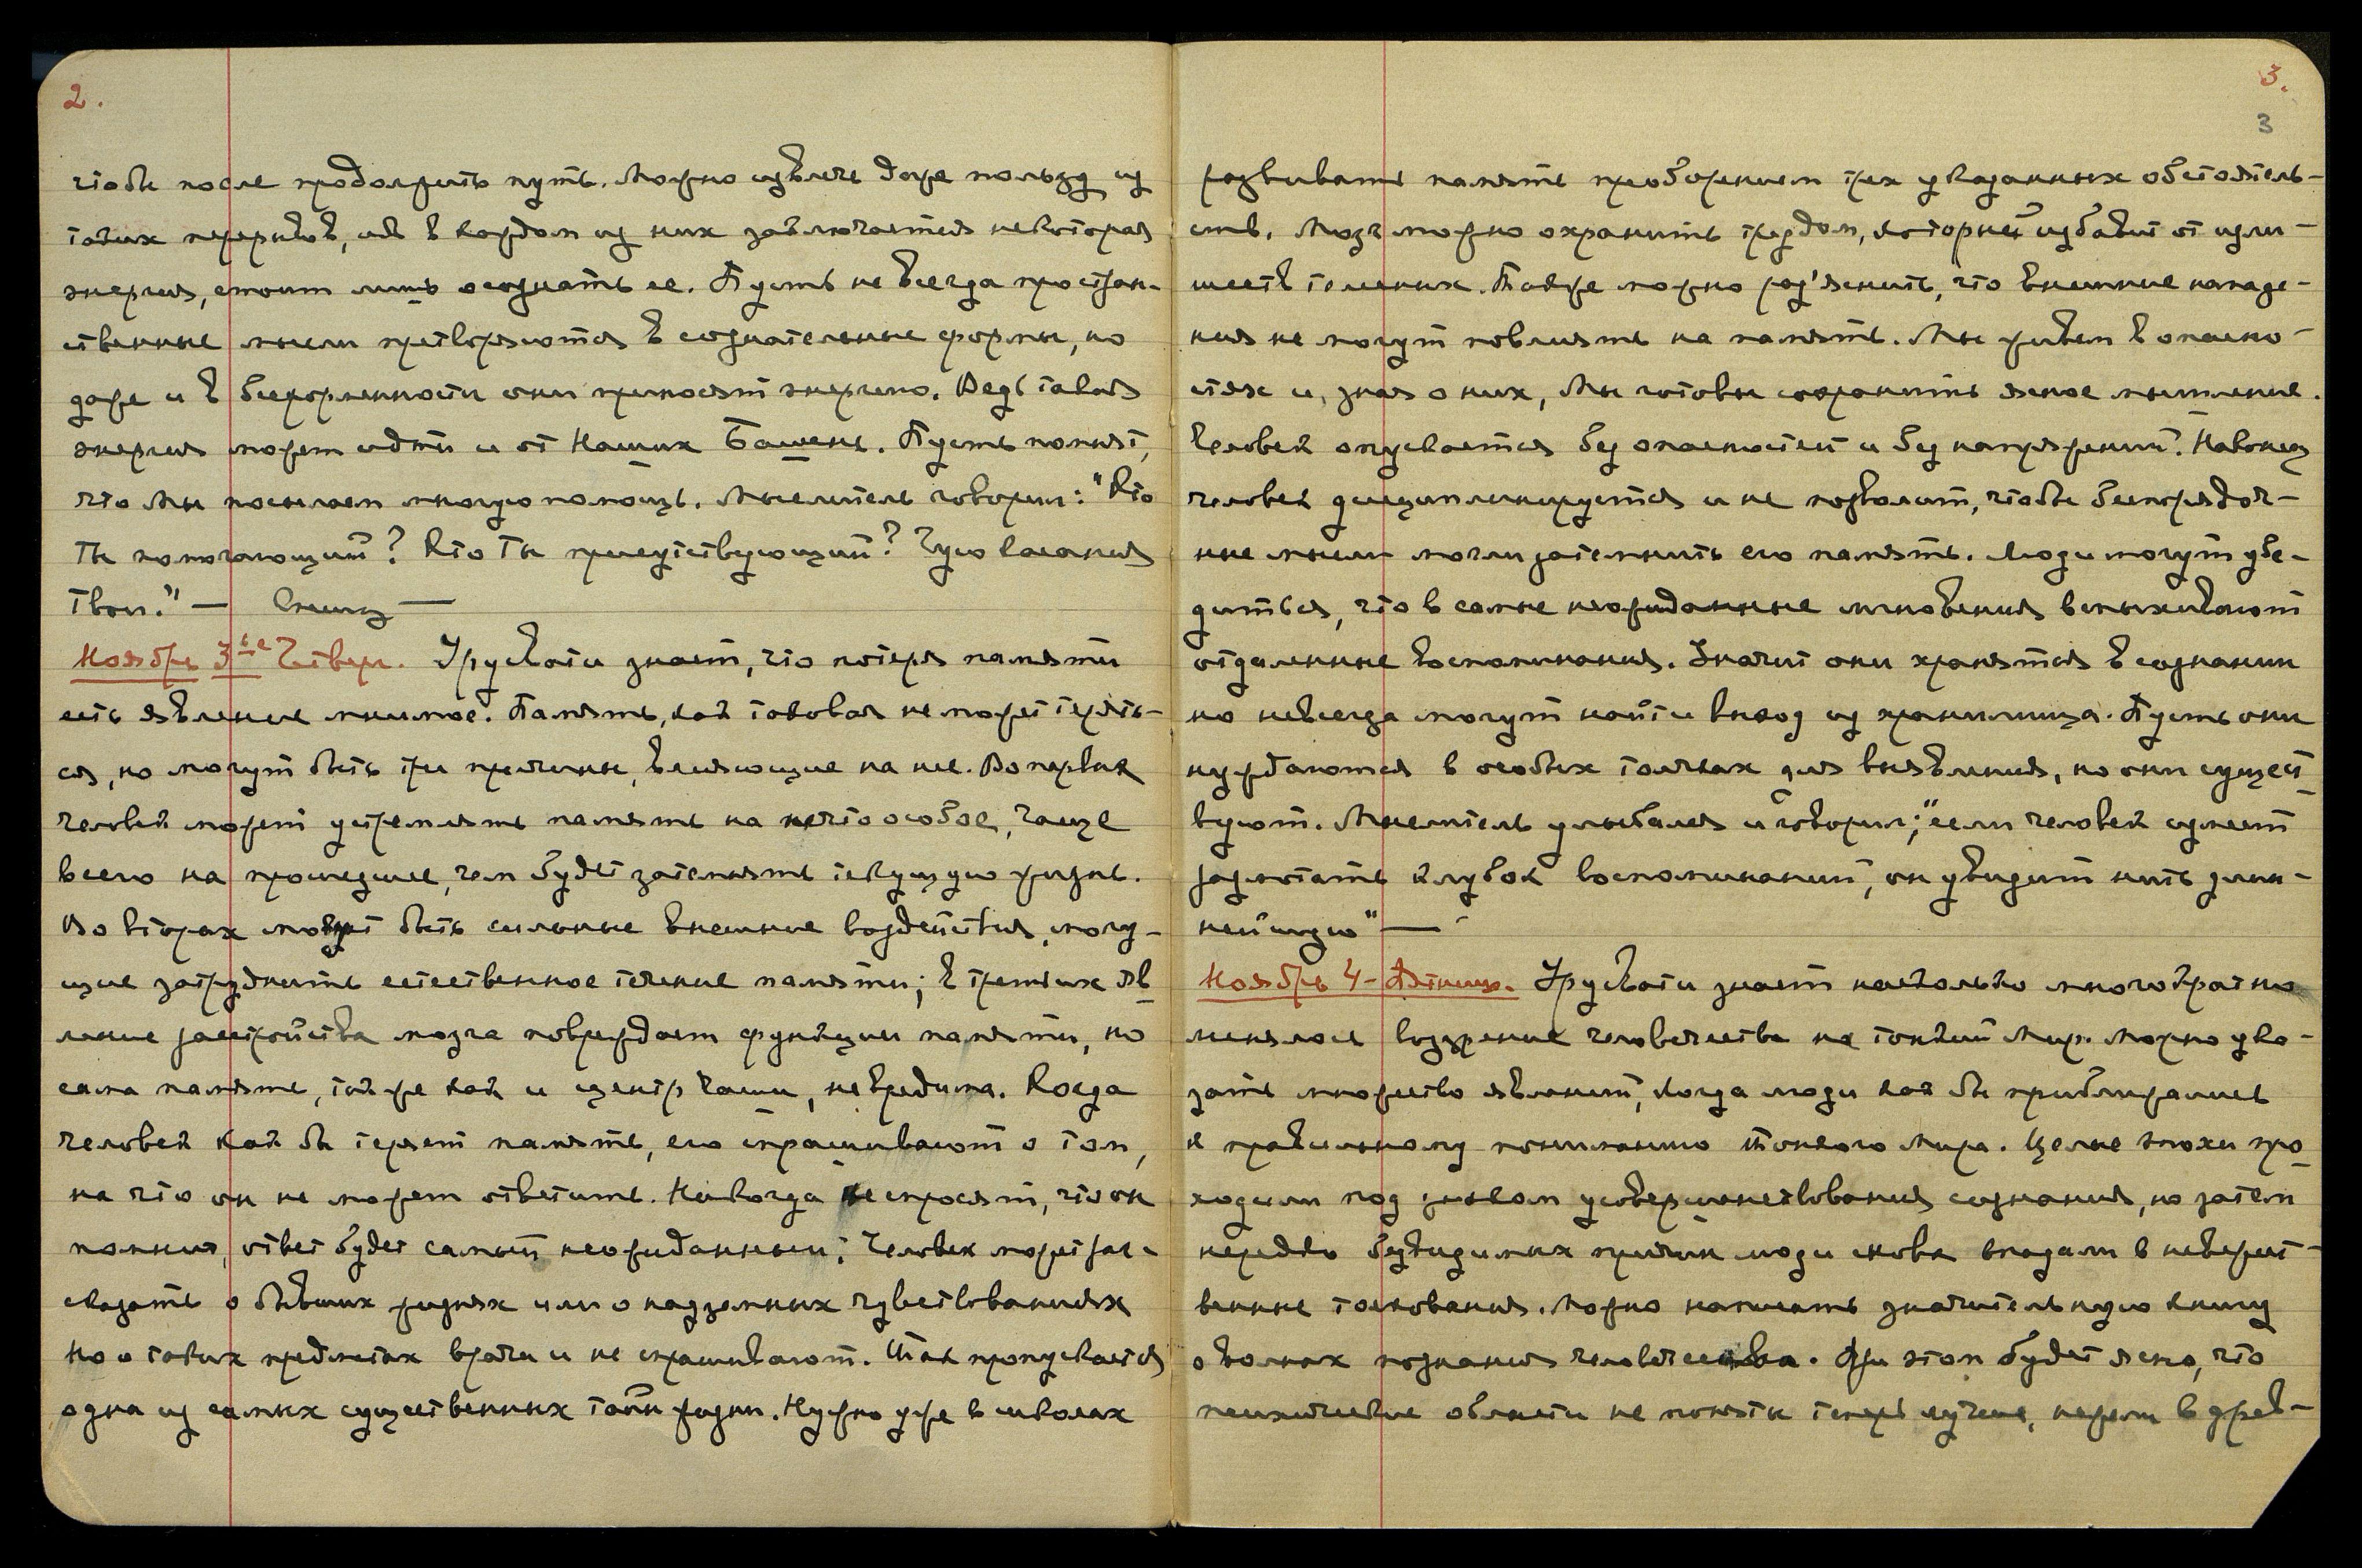 2.
чтобы после продолжить путь. Можно извлечь даже пользу из
таких перерывов, ибо в каждом из них заключается некоторая
энергия, стоит лишь осознать ее. Пусть не всегда простран-
ственные мысли претворяются в сознательные формы, но
даже и в бесформенности они приносят энергию. Ведь такая
энергия может идти и от Наших Башень. Пусть помнят,
что Мы посылаем многую помощь. Мыслитель говорил: "Кто
Ты помогающий? Кто Ты присутствующий? Чую касания
Твои." —
Ноябрь 3ье Четверг. Урусвати знает, что потеря памяти
есть явление мнимое. Память, как таковая не может терять-
ся, но могут быть три причины, влияющие на нее. Во первых
человек может устремлять память на нечто особое, чаще
всего на прошедшее, чем будет затемнять текущую жизнь.
Во вторых могут быть сильные внешние воздействия, могу-
щие затруднить естественное течение памяти; в третьих яв
ление расстройства мозга повреждает функции памяти, но
сама память, так же как и центр Чаши, невредима. Когда
человек как бы теряет память, его спрашивают о том,
на что он не может ответить. Никогда не спросят, что он
помнит, ответ будет самый неожиданный; Человек может рас-
сказать о бывших жизнях или о надземных чувствованиях
Но о таких предметах врачи и не спрашивают. Так пропускается
одна из самых существенных тайн жизни. Нужно уже в школах
3.
3
развивать память преоборением трех указанных обстоятель-
ств. Мозг можно охранить трудом, который избавит от изли-
шеств телесных. Также можно раз'яснить, что внешние нападе-
ния не могут повлиять на память. Мы живем в опасно-
стях и, зная о них, Мы готовы сохранить ясное мышление.
Человек опускается без опасностей и без напряжений. Наконец
человек дисциплинируется и не позволит, чтобы беспорядоч-
ные мысли могли затемнить его память. Люди могут убе-
диться, что в самые неожиданные мгновения вспыхивают
отдаленные воспоминания. Значит они хранятся в сознании
но не всегда могут найти выход из хранилища. Пусть они
нуждаются в особых толчках для выявления, но они сущест
вуют. Мыслитель улыбался и говорил; "если человек сумеет
размотать клубок воспоминаний, он увидит нить длин-
нейшую" —
Ноябрь 4- Пятница. Урусвати знает насколько многократно
менялось воззрение человечества на тонкий Мир. Можно ука-
зать множество явлений, когда люди как бы приближались
к правильному пониманию Тонкого Мира. Целые эпохи про
ходили под знаком усовершенствования сознания, но затем
нередко без видимых причин люди снова впадали в невежест-
венные толкования. Можно написать значительную книгу
о волнах познания человечества. При этом будет ясно, что
психические области не поняты теперь лучше, нежели в древ-